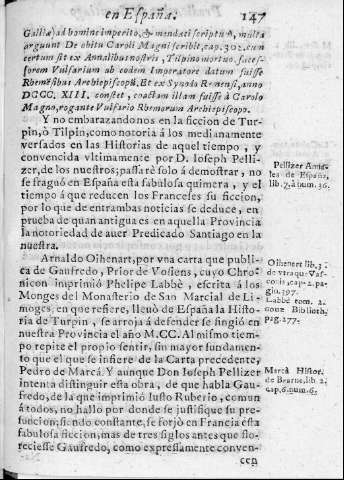 en España. 147
Galliæ) ad homine imperito, & mendaci scriptu ẽ, multa
arguunt De obitu Caroli Magni scribit, cap. 30 2. cun
certum sit ex Annalibus nostris, Tilpino mortuo, succes-
sorem Vulfarium ab eodem Imperatore datum fuisse
Rhemēsibus Archiepiscopũ. Et ex Synodo Remensi, anno
DCCC. XIII. constet, coactam illam fuisse à Carolo
Magno, rogante Vulfario Rhemorum Archiepiscopo.
Y no embarazandonos en la ficcion de Tur-
pin, ò Tilpin, como notoria á los medianamente
versados en las Historias de aquel tiempo, y
convencida vltimamente por D. Ioseph Pelli-
zer, de los nuestros; passarè solo á demostrar, no
se fraguó en España esta fabulosa quimera, y el
tiempo á que reducen los Franceses su ficcion,
por lo que de entrambas noticias se deduce, en
prueba de quan antigua es en aquella Provincia
la notoriedad de auer Predicado Santiago en la
nuestra.
Pellizer Anna-
les de España,
lib. 7. à num. 36.
Arnaldo Oihenart, por vna carta que publi-
ca de Gaufredo, Prior de Vosiens, cuyo Chro-
nicon imprimió Phelipe Labbè, escrita á los
Monges del Monasterio de San Marcial de Li-
moges, en que refiere, lleuò de España la Histo-
ria de Turpin, se arroja á defender se fingió en
nuestra Provincia el año M.CC. Al mismo tiem-
po repite el proprio sentir, sin mayor fundamen-
to que el que se infiere de la Carta precedente,
Pedro de Marcá. Y aunque Don Ioseph Pellizer
intenta distinguir esta obra, de que habla Gau-
fredo, de la que imprimió Iusto Ruberio, comun
à todos, no hallo por donde se justifique su pre-
suncion; siendo constante, se forjò en Francia esta
fabulosa ficcion, mas de tres siglos antes que flo-
reciesse Gaufredo, como expressamente conven-
cen
Oihenart lib. 3.
de vtraque Vas-
conia, cap. 2. pa-
gin. 397.
Labbé tom. 2.
nouæ Biblioth.
pag. 277.
Marcà Histor.
de Bearne, lib. 2.
cap. 6. num. 6.